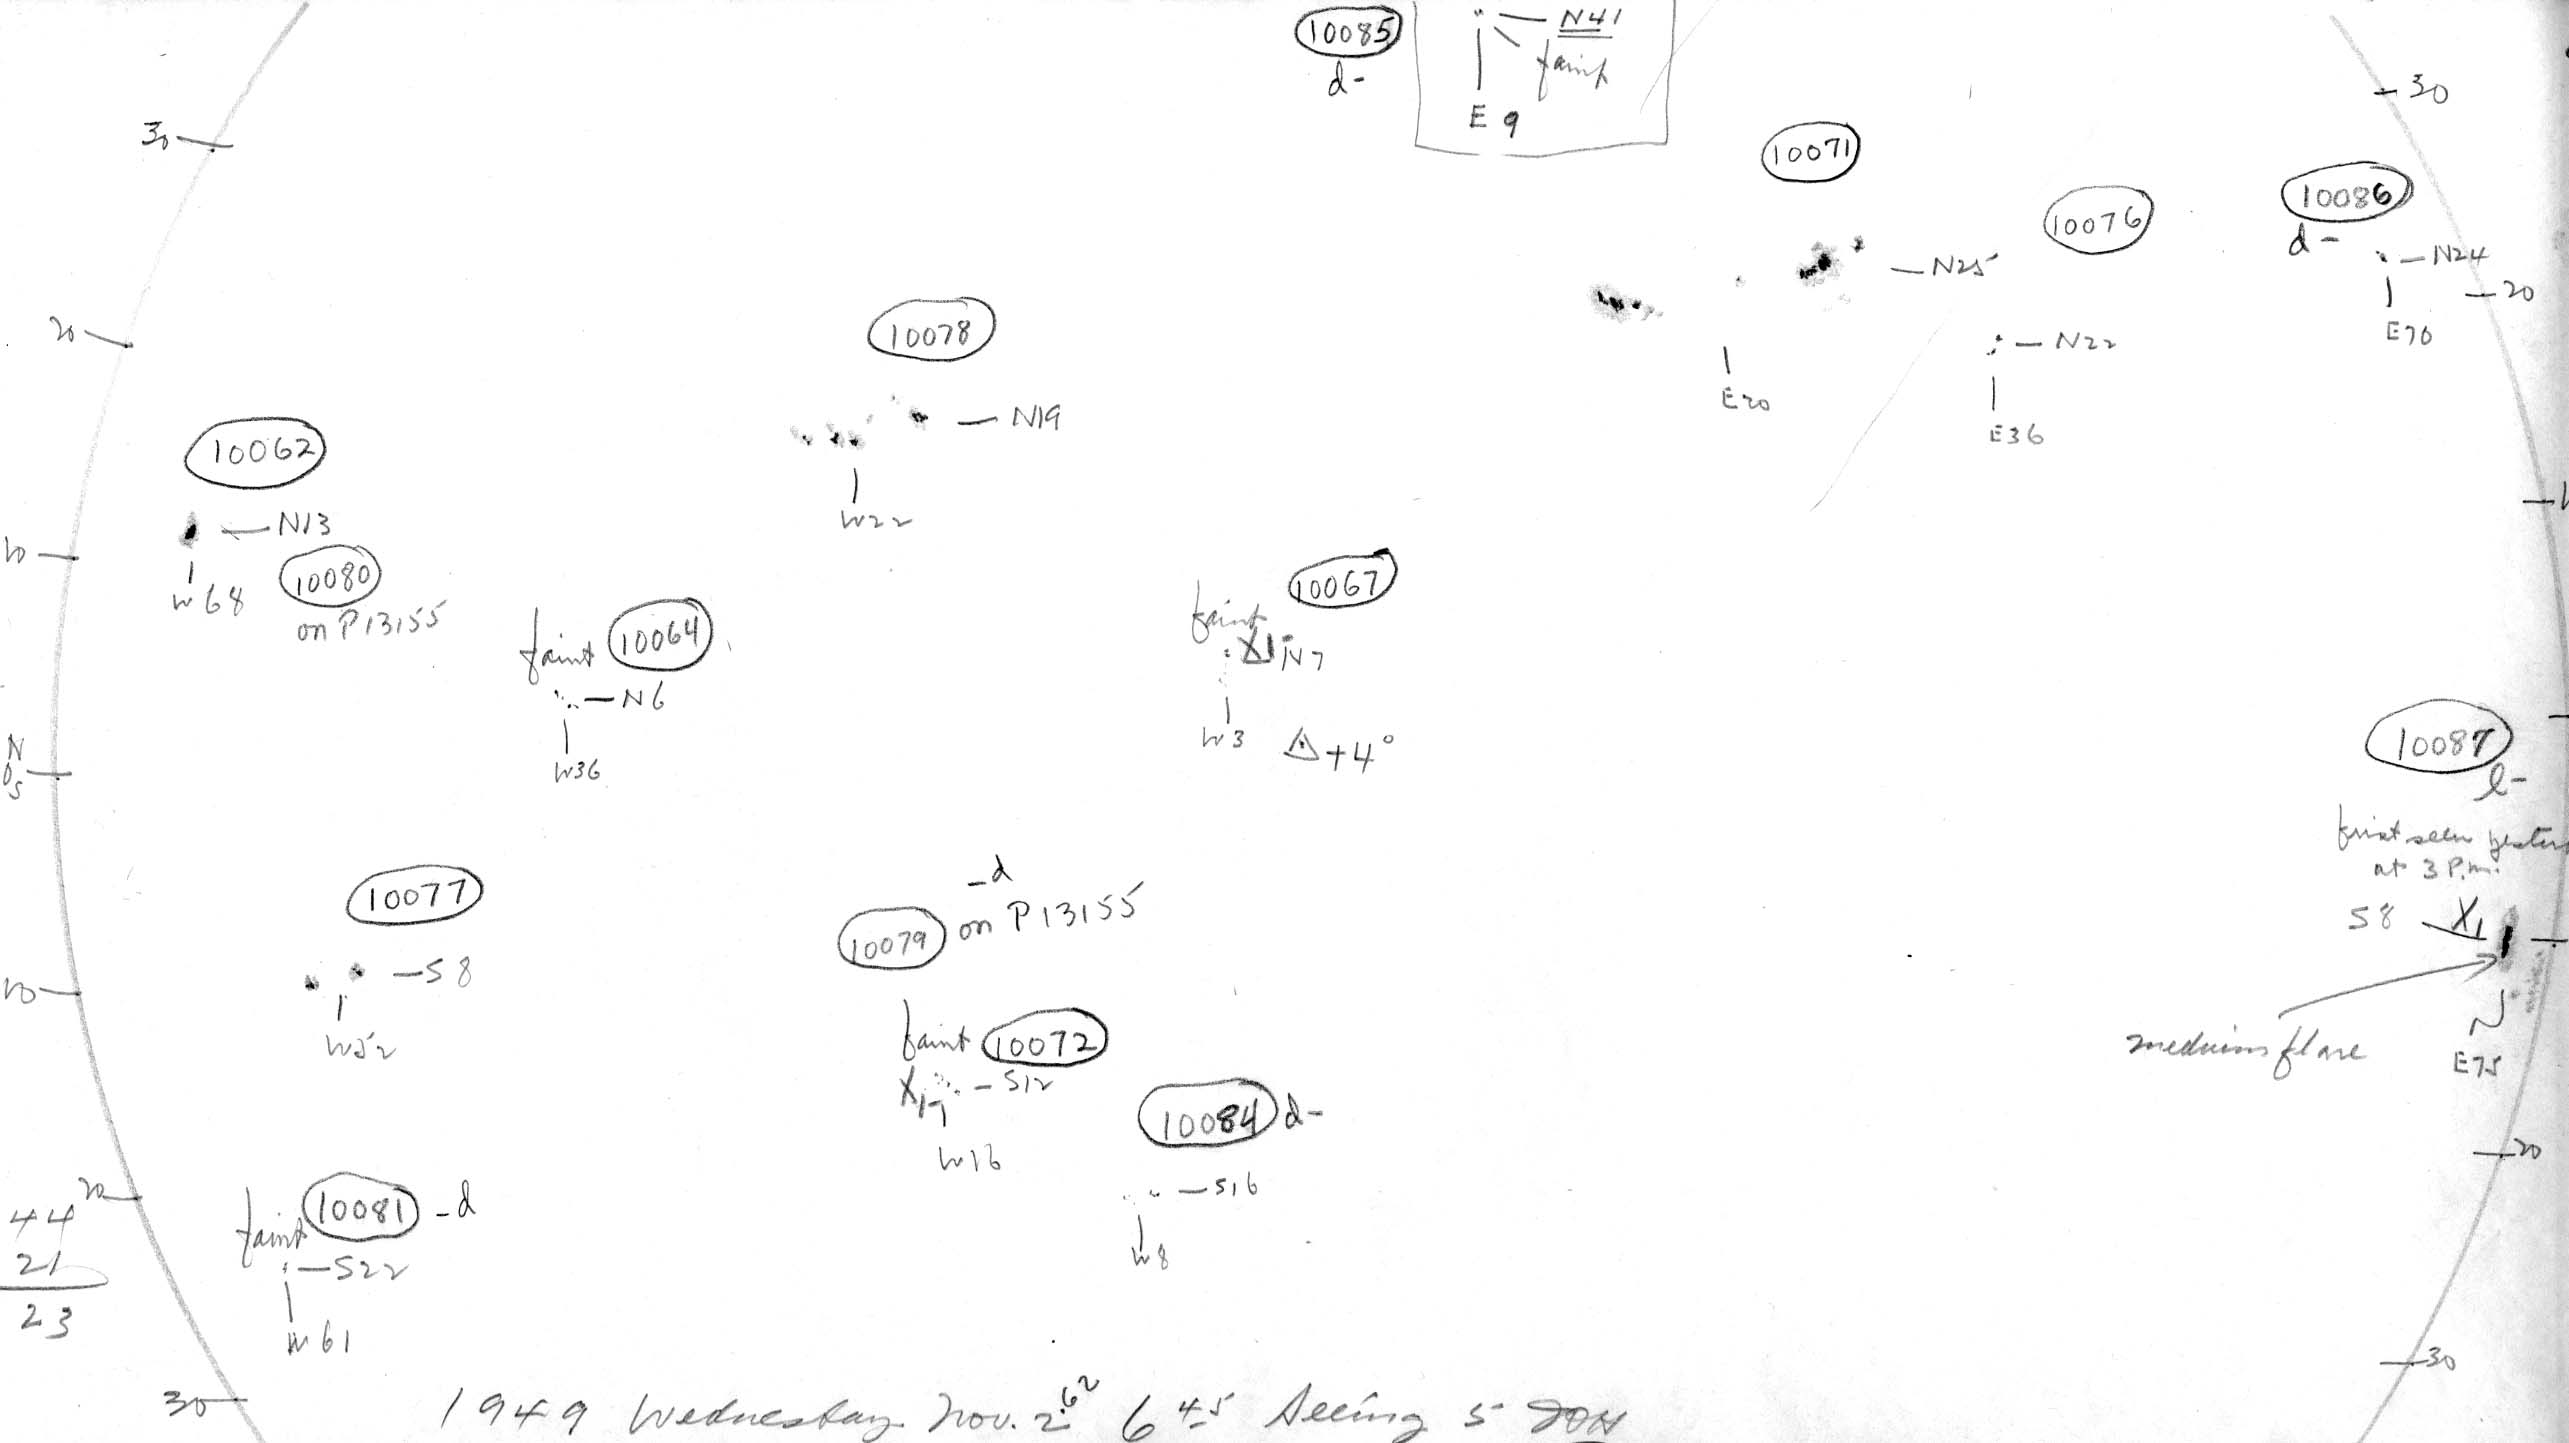 10085
d-
N41
faint
E 9
30
30
10071
10076
10086
d-
N24
20
E70
N25
N22
E20
E36
20
10078
N19
W22
10062
N13
W68
10
10080
on P13155
faint 10064
N6
W36
faint 10067
N7
W3
△ +4°
N
0
S
10087
l-
first seen
at 3 P.m.
S8 X1
medium flare
E75
10077
S8
W52
10
-d
10079 on P13155
faint 10072
S12
W16
10084 d-
S16
W8
20
20
44
21
23
faint 10081 -d
S22
W61
30
30
1949 Wednesday Nov. 2.62 6 45 Seeing 5